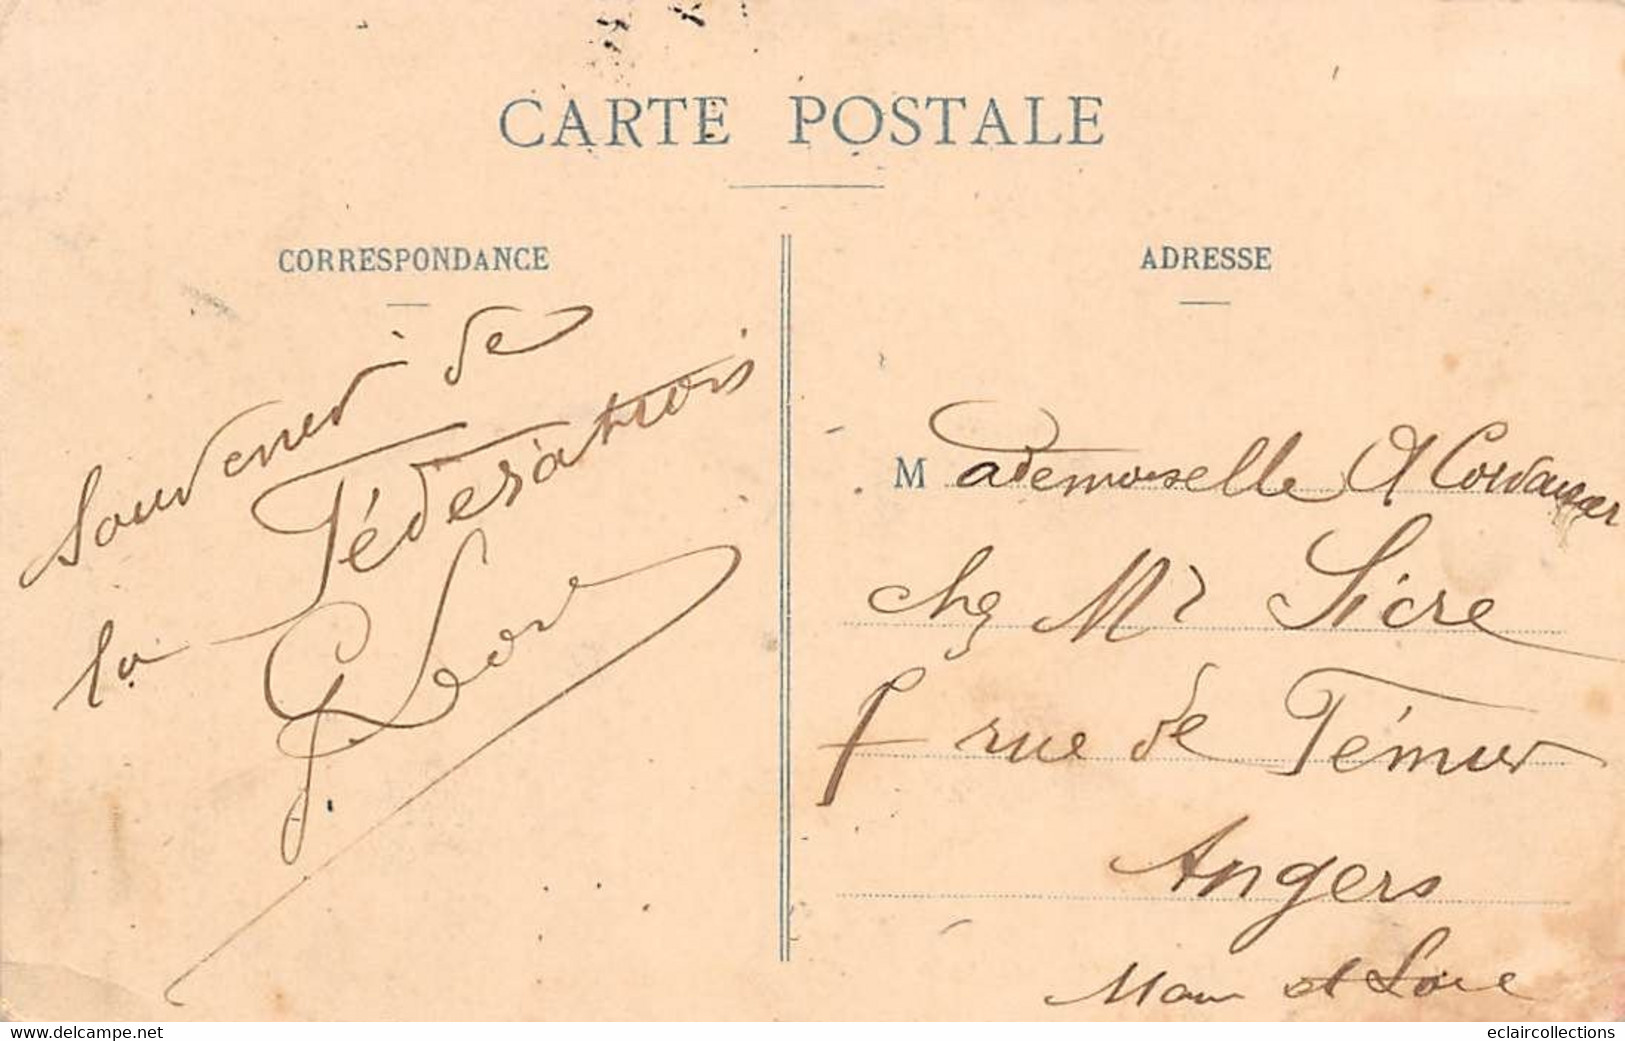 CARTE POSTALE
CORRESPONDANCE
Souvenir de
la Fédération
ADRESSE
Mademoiselle A
chez Mr Sicre
rue de Témur
Angers
Maine et Loire
eclaircollections